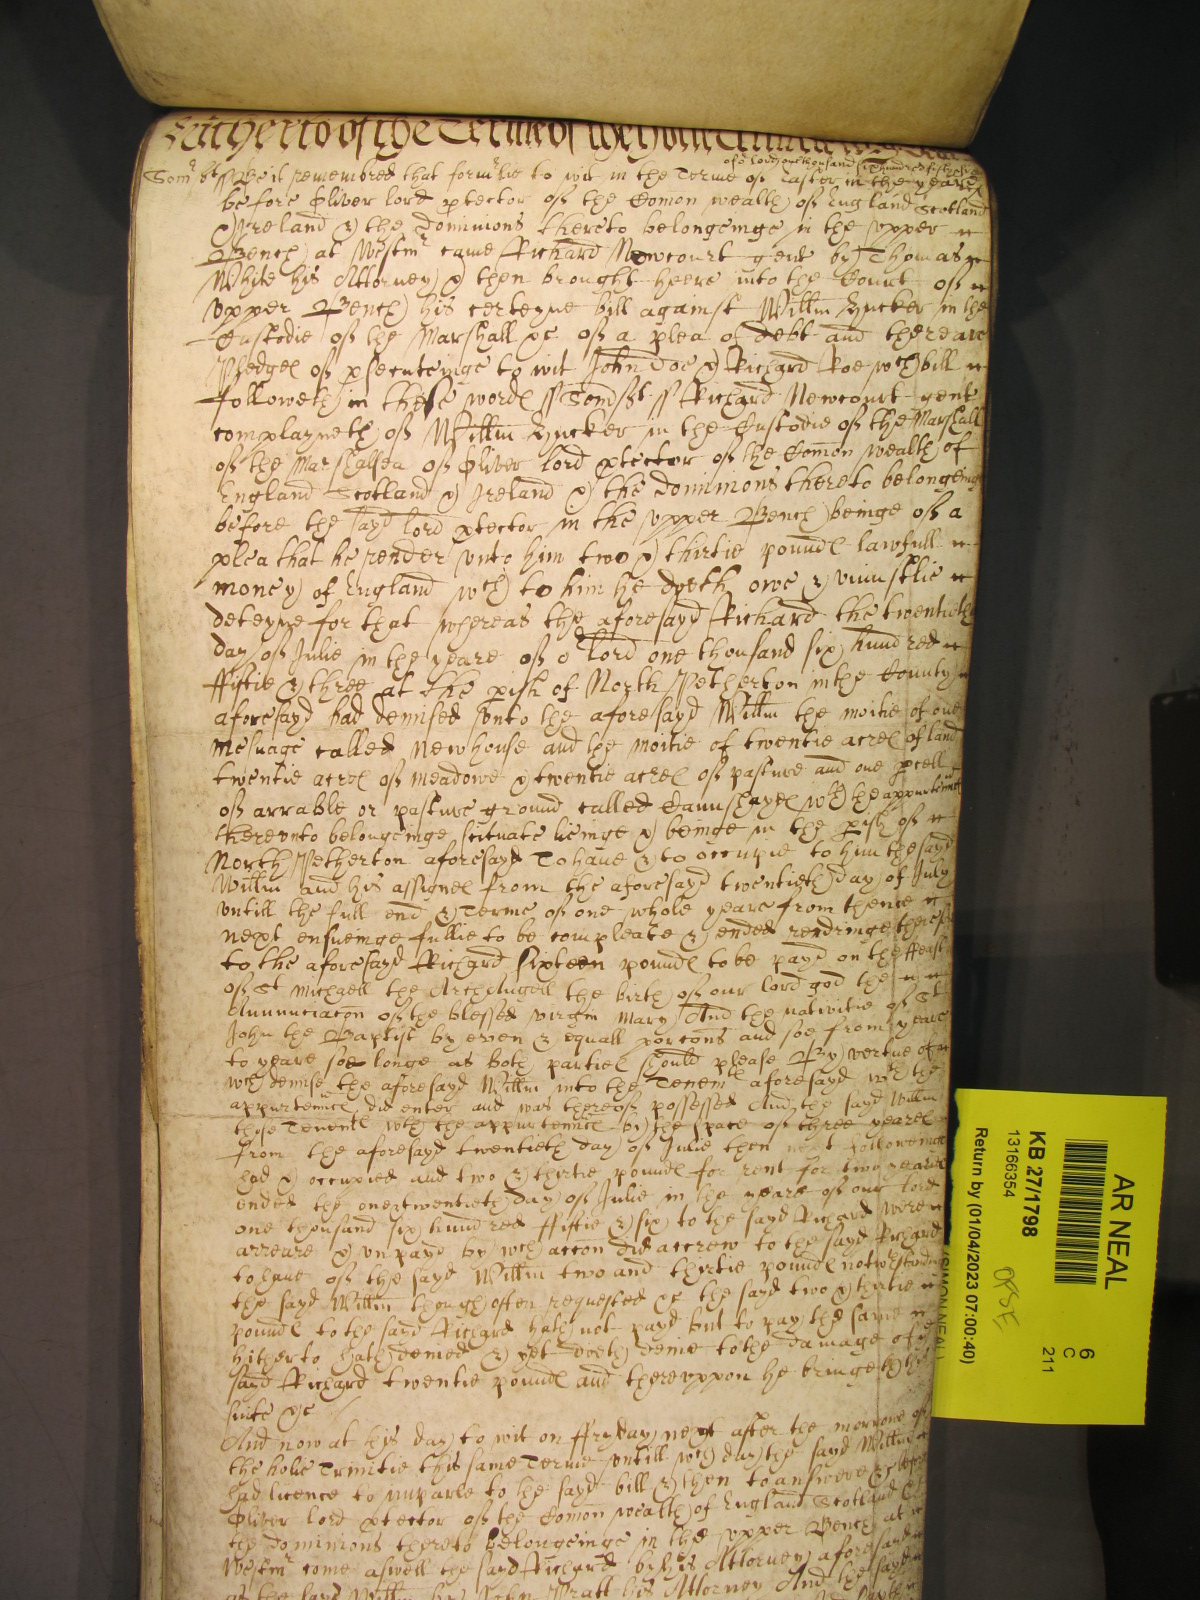 hitherto of the Terme of the holie Trinitie
of or Lord one thousand six hundred fiftie
Somst st Be it remembred that formlie to wit in the Terme of Easter in the yeare
before Oliver lord ptector of the Comon wealth of England Scotland
& Ireland & the Dominions thereto belongeinge in the vpper
Bench at Westmr came Richard Newcourt gent by Thomas
White his Attorney & then brought heere into the Court of
vpper Bench his certeyne bill against Willm Hucker in the
Custodie of the Marshall &c of a plea of debt and there are
Pledges of psecuteinge to wit John Doe & Richard Roe wch bill
followeth in these words ss Somst ss Richard Newcourt gent
complayneth of Willm Hucker in the Custodie of the Marshall
of the Marshalsea of Oliver lord ptector of the Comon wealth of
England Scotland & Ireland & the Dominions thereto belongeinge
before the sayd lord ptector in the vpper Bench beinge of a
plea that he render vnto him two & thirtie pounds lawfull
money of England wch to him he doeth owe & viniustlie
deteyne for that whereas the aforesayd Richard the twentieth
day of Julie in the yeare of or lord one thousand six hundred
ffiftie & three at the pish of North Petherton in the County
aforesayd had demised vnto the aforesayd Willm the moitie of one
mesuage called Newhouse and the moitie of twentie acres of land
twentie acres of meadowe & twentie acres of pasture and one pcell
of arrable or pasture ground called wth the appurtennces
therevnto belongeinge scituate lieinge & beinge in the pish of
North Petherton aforesayd To haue & to occupie to him the sayd
Willm and his assignes from the aforesayd twentieth day of July
vntill the full end & Terme of one whole yeare from thence
next ensueinge fullie to be compleate & ended rendringe therefore
to the aforesayd Richard sixteen pounds to be payd on the ffeast
of St Michaell the Archangell the birth of our lord god the
Annunciacon of the blessed virgin Mary And the nativitie of St
John the Baptist by even & equall porcons and soe from yeare
to yeare soe longe as both parties should please By vertue of
wch demise the aforesayd Willm into the Tenemts aforesayd wth the
appurtennces did enter and was thereof possessed And the sayd Willm
those Tenemts wth the appurtennces by the space of three yeares
from the aforesayd twentieth day of Julie then next followeinge
had & occupied and two & thirtie pounds for rent for two yeares
ended the one & twentieth day of Julie in the yeare of our lord
one thousand six hundred ffiftie & six to the sayd Richard were
arreare & vnpayd by wch accon did accrew to the sayd Richard
to haue of the sayd Willm two and thirtie pounds notwthstandinge
the sayd Willm though often requested &c the sayd two & thirtie
pounds to the sayd Richard hath not payd but to pay the same
hitherto hath denied & yet doeth denie to the damage of the
sayd Richard twentie pounds and therevppon he bringeth his
suite &c
And now at this day to wit on ffryday next after the morrowe of
the holie Trinitie this same Terme vntill wch day the sayd Willm
had licence to imparle to the sayd bill & then to answere &c before
Oliver lord ptector of the Comon wealth of England Scotland &c
the dominions thereto belongeinge in the vpper Bench at
Westmr come aswell the sayd Richard by his Attorney aforesayd
as the sayd Willm by John Pratt his Attorney And the sayd
AR NEAL
6
C
211
KB 27/1798
13166354
Return by (01/04/2023 07:00:40)
(SIMON NEAL)